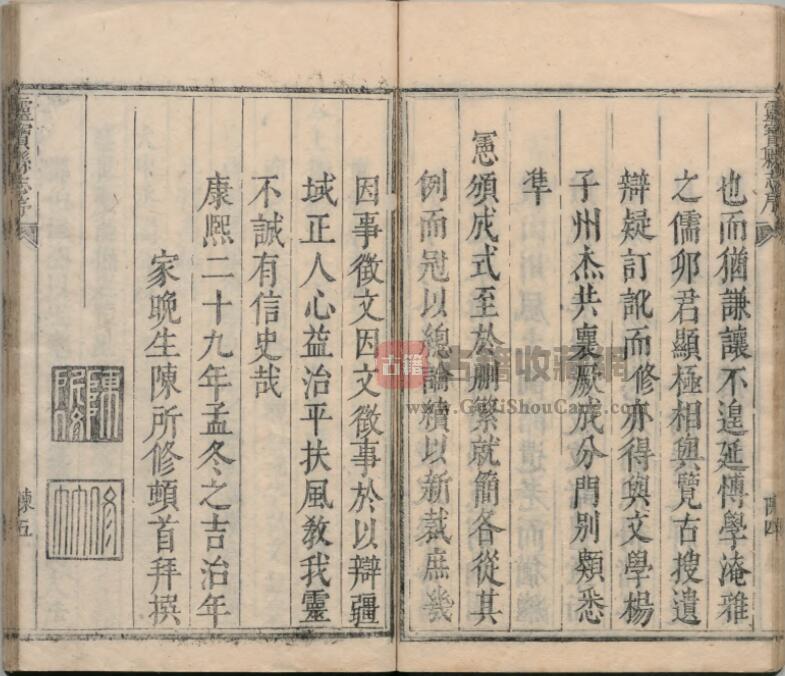 靈寶縣志序
也而猶謙讓不遑延博學淹雅
之儒卯君顯極相與覽古搜遺
辯疑訂訛而修亦得與文學楊
子州杰共襄厥成分門別類悉
準
憲頒成式至於刪繁就簡各從其
例而冠以總論續以新裁庶幾
陳四
因事徵文因文徵事於以辯疆
域正人心益治平扶風敎我靈
不誠有信史哉
康熙二十九年孟冬之吉治年
家晚生陳所修頓首拜撰
陳所修
靈寶縣志序
陳五
古籍
古籍收藏網
www.GuJiShouCang.com